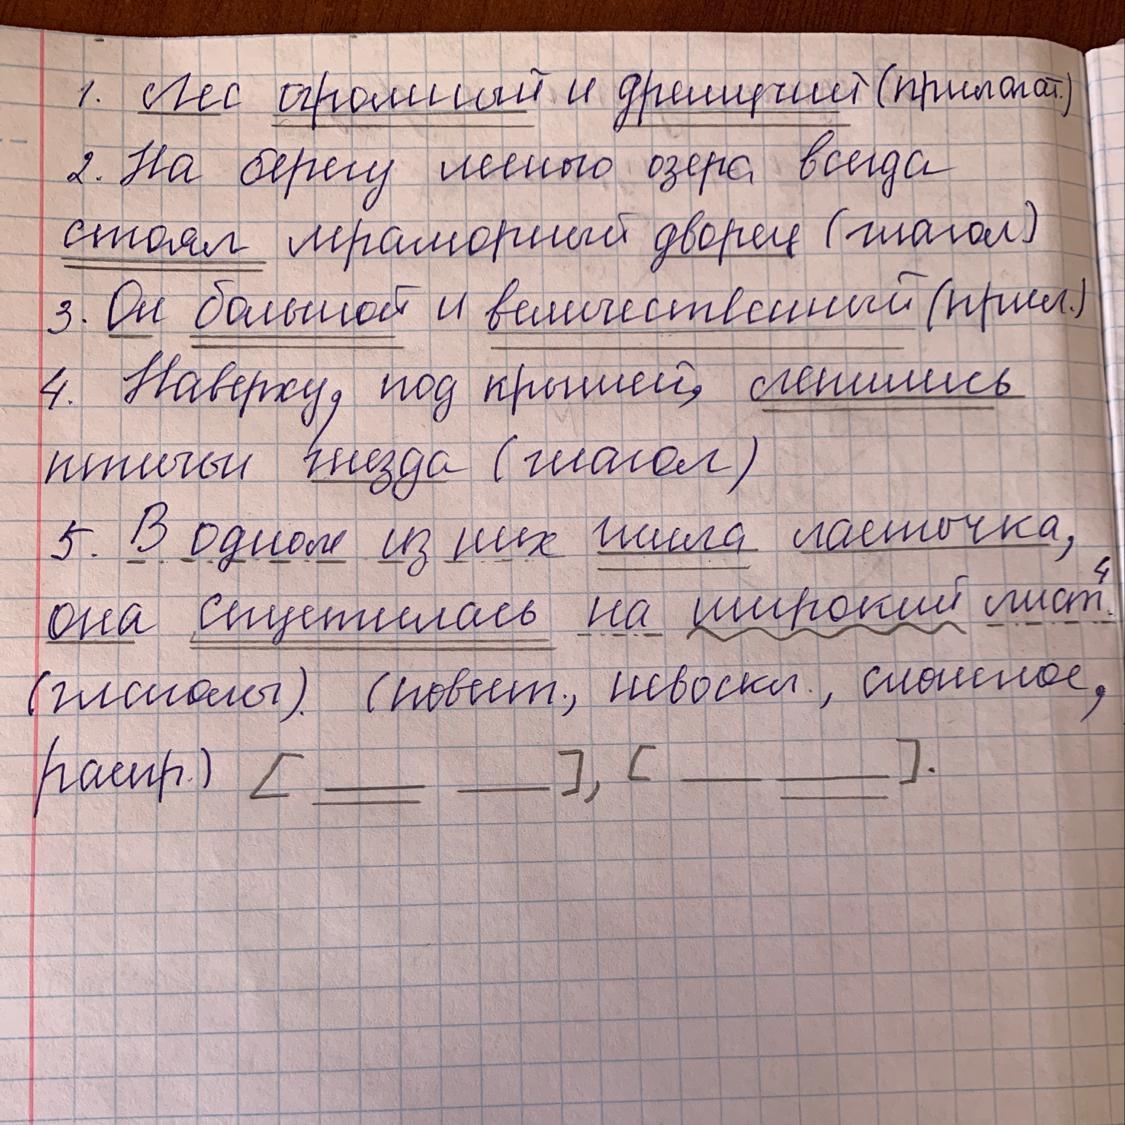 1. Лес огромный и дремучий (прилагат.)
2. На берегу лесного озера всегда
стоял мраморный дворец (глагол)
3. Он большой и величественный (прил.)
4. Наверху, под крышей, лепились
птичьи гнёзда (глагол)
5. В одном из них жила ласточка,
она спустилась на широкий лист. 4
(глаголы). (повест., невоскл., сложное,
распр.) [ ], [ ].